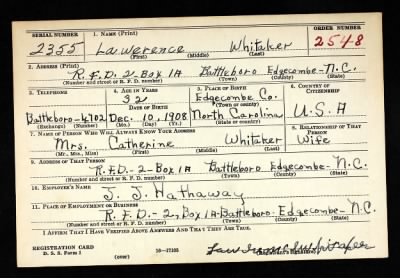 SERIAL NUMBER 1. NAME (Print) ORDER NUMBER
2355 Lawerence Whitaker 2548
(First) (Middle) (Last)
2. ADDRESS (Print)
R.F.D. 2-Box 1A Battleboro Edgecombe-N.C.
(Number and street or R. F. D. number) (Town) (County) (State)
3. TELEPHONE 4. AGE IN YEARS 5. PLACE OF BIRTH 6. COUNTRY OF CITIZENSHIP
32 Edgecombe Co.
DATE OF BIRTH (Town or county)
Battleboro-4702 Dec. 10, 1908 North Carolina U.S.A
(Exchange) (Number) (Mo.) (Day) (Yr.) (State or country)
7. NAME OF PERSON WHO WILL ALWAYS KNOW YOUR ADDRESS 8. RELATIONSHIP OF THAT PERSON
Mrs. Catherine Whitaker Wife
(Mr., Mrs., Miss) (First) (Middle) (Last)
9. ADDRESS OF THAT PERSON
R.F.D.-2-Box 1A Battleboro Edgecombe-N.C.
(Number and street or R. F. D. number) (Town) (County) (State)
10. EMPLOYER'S NAME
J. J. Hathaway
11. PLACE OF EMPLOYMENT OR BUSINESS
R.F.D.-2, Box 1A-Battleboro-Edgecombe-N.C.
(Number and street or R. F. D. number) (Town) (County) (State)
I AFFIRM THAT I HAVE VERIFIED ABOVE ANSWERS AND THAT THEY ARE TRUE.
REGISTRATION CARD
D. S. S. Form 1 (over) 16-17105